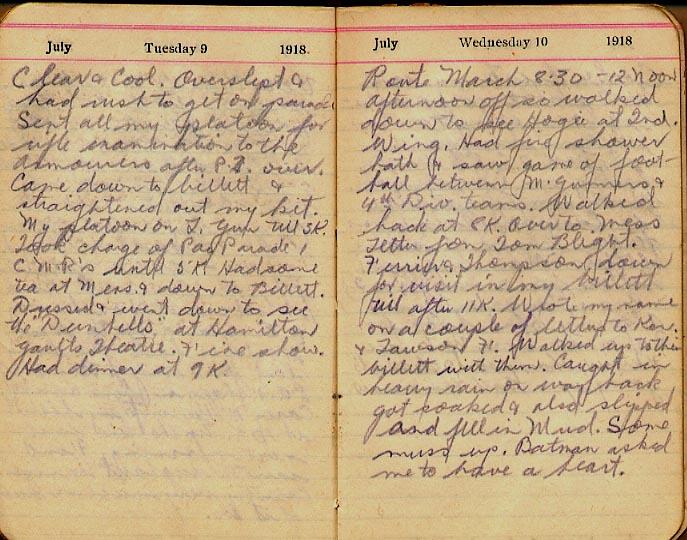 July Tuesday 9 1918.
Clear & Cool. Overslept &
had rush to get on parade
Sent all my platoon for
rifle examination to the
armourers after P.T. over.
Came down to billett &
straightened out my kit.
My platoon on L. Gun till 3K.
Took charge of Pay Parade
C.M.P's until 5K Had
tea at Mess. & down to Billett.
Dressed & went down to see
the "Dumbells" at Hamilton
Theatre. Fine show.
Had dinner at 9K.
July Wednesday 10 1918
Route March 8.30 - 12 Noon
afternoon off so walked
down to see Hogie at 2nd.
Wing. Had fine shower
bath & saw game of foot-
ball between M. Gunners &
4th Div. teams. Walked
back at 8K. Over to Mess
Letter from Tom Blight.
& Thompson down
for visit in my billett
till after 11K. Wrote my name
on a couple of letters to Ken.
& Lawson F. Walked up to their
billett with them. Caught in
heavy rain on way back
got soaked & also slipped
and fell in Mud. Some
muss up. Batman asked
me to have a heart.